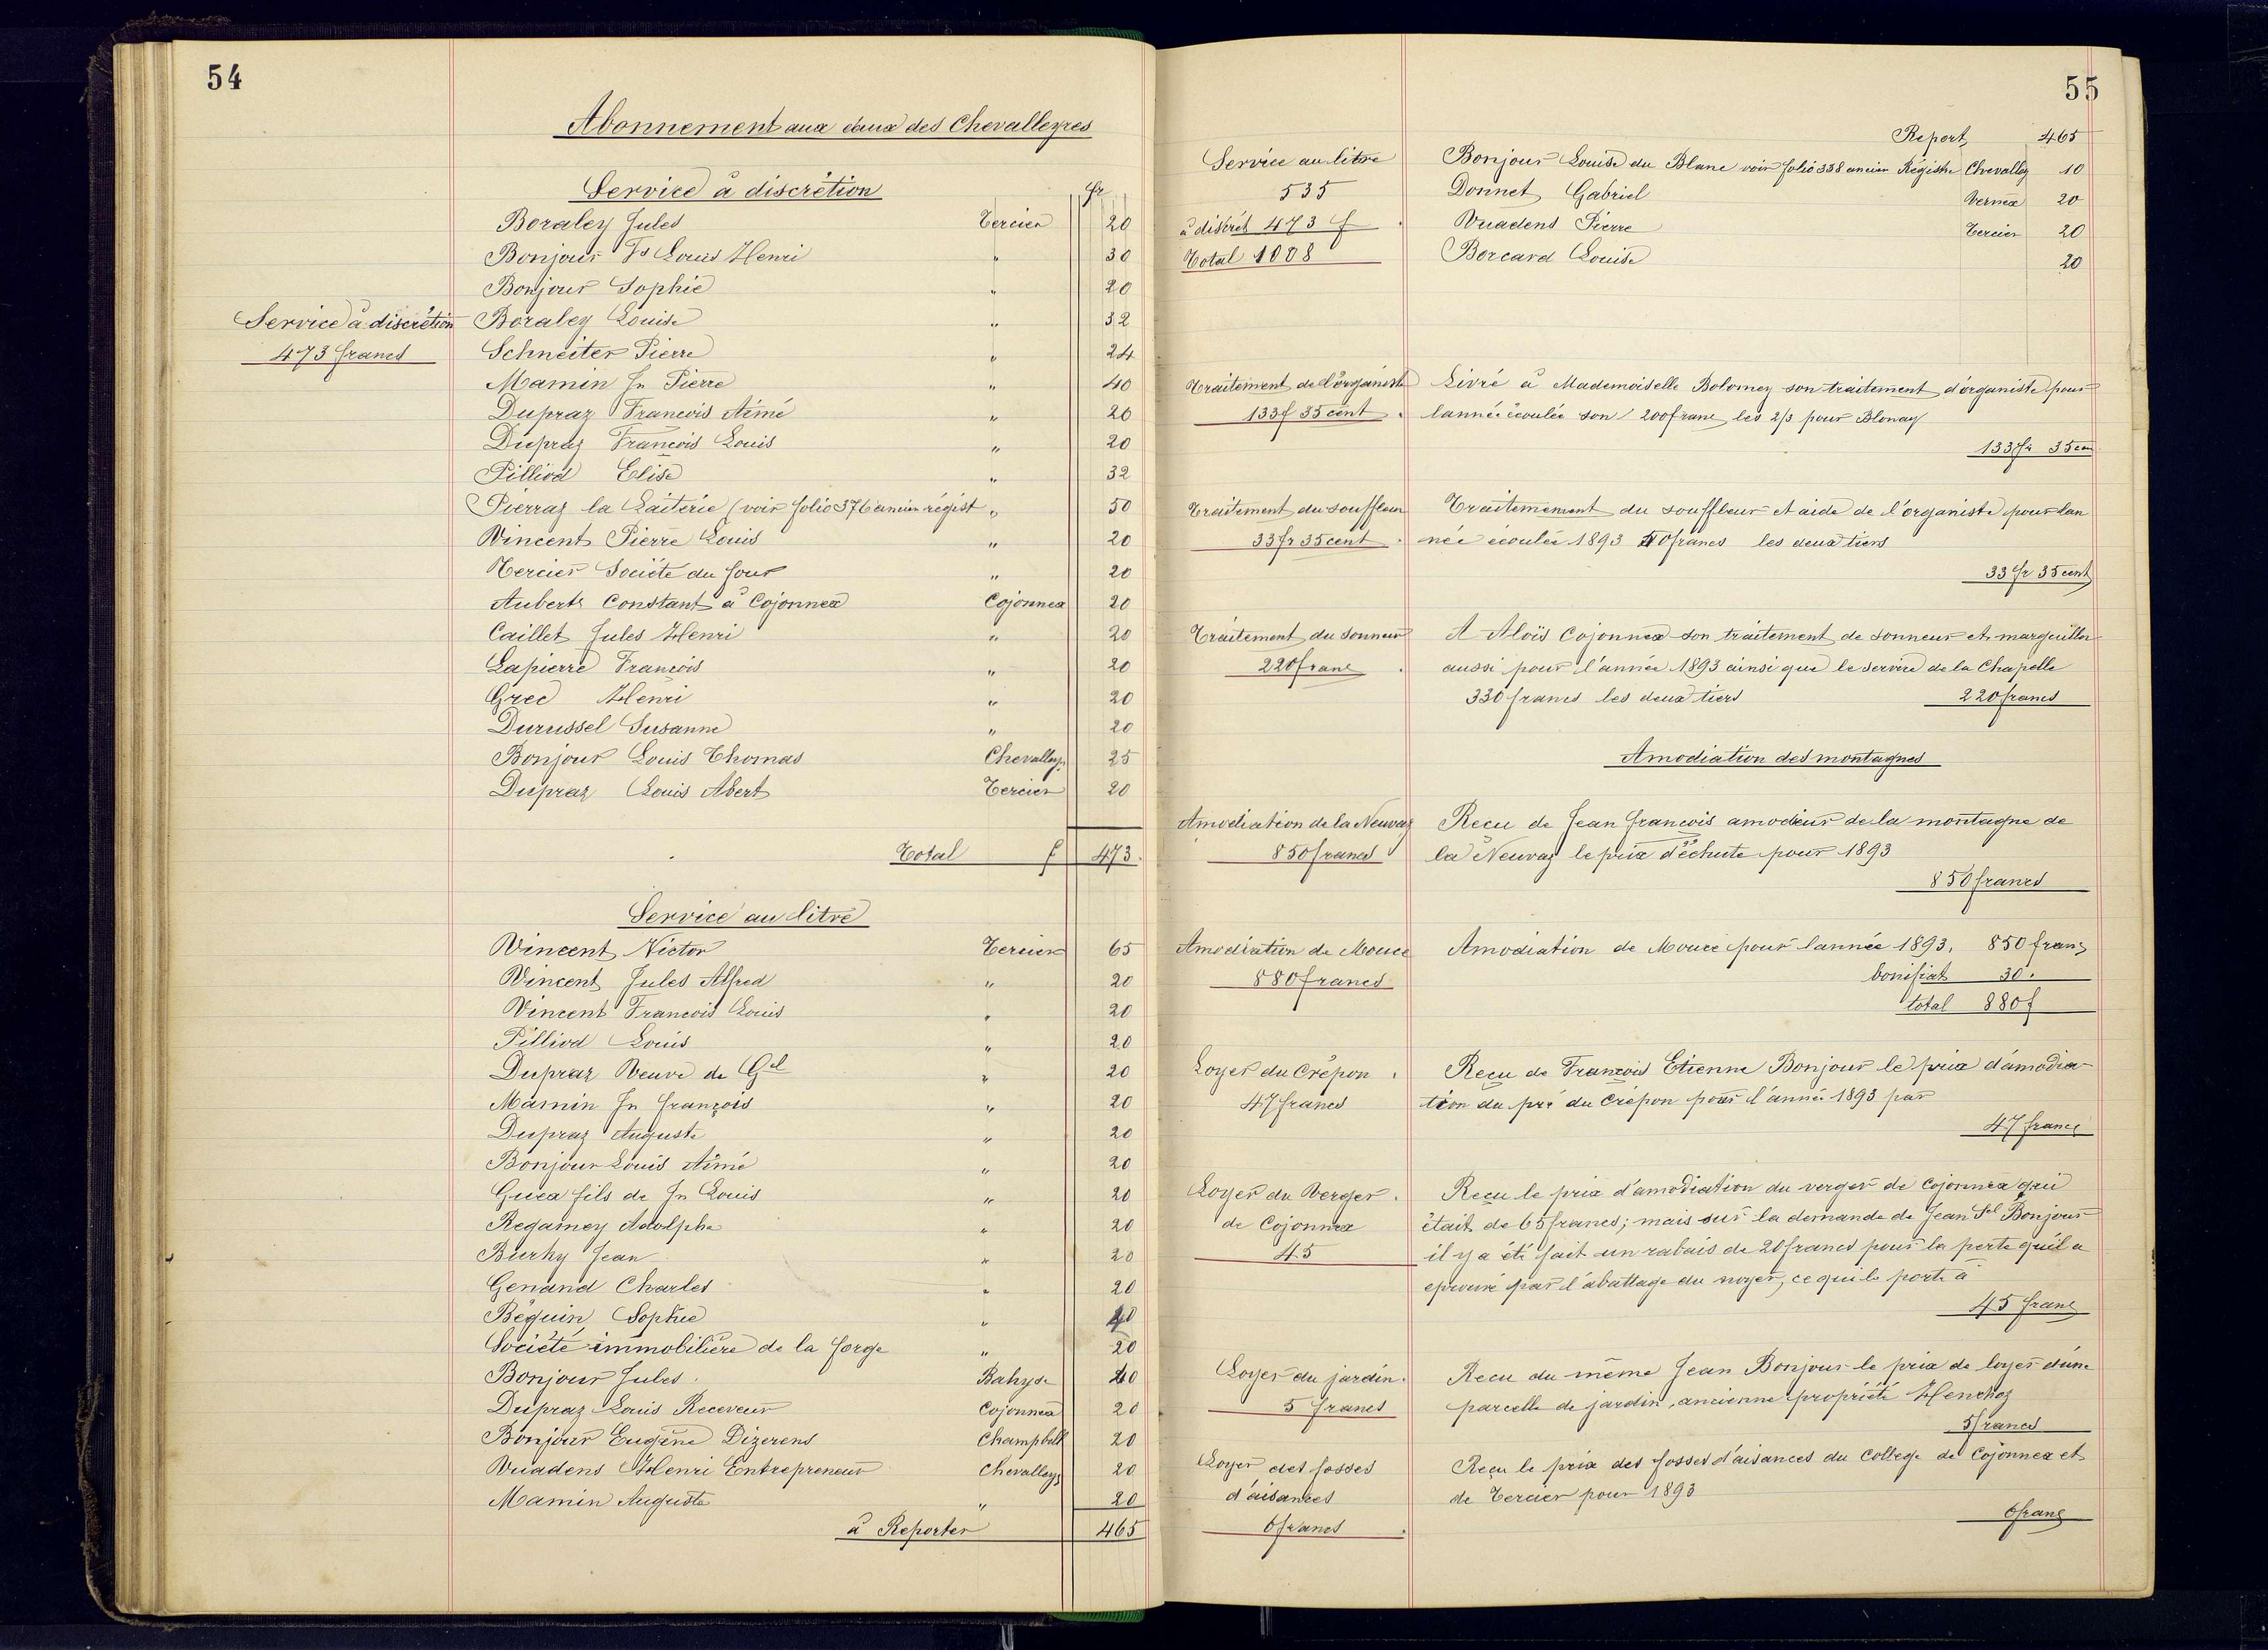 54
Abonnement aux eaux des Chevalleyres
Service à discrétion
fr
Boraley Jules Tercier 20
Bonjour Fs Louis Henri " 30
Bonjour Sophie " 20
Service à discrétion
473 francs
Boraley Louise " 32
Schneiter Pierre " 24
Mamin Jn Pierre " 40
Dupraz François Aimé " 20
Dupraz François Louis " 20
Pilliod Elise " 32
Pierraz la Laiterie (voir folio 376 ancien régist " 50
Vincent Pierre Louis " 20
Tercier Société du four " 20
Aubert Constant à Cojonnex Cojonnex 20
Caillet Jules Henri " 20
Lapierre François " 20
Grec Henri " 20
Durussel Susanne " 20
Bonjour Louis Thomas Chevalleys 25
Dupraz Louis Abert Tercier 20
Total f 473.
Service au litre
Vincent Victor Tercier 65
Vincent Jules Alfred " 20
Vincent François Louis " 20
Pilliod Louis " 20
Dupraz Veuve de Gel " 20
Mamin Jn françois " 20
Dupraz Auguste " 20
Bonjour Louis Aimé " 20
Guex fils de Jn Louis " 20
Regamey Adolphe " 20
Burky Jean " 20
Genand Charles " 20
Béguin Sophie " 40
Société immobilière de la forge " 20
Bonjour Jules Bahyse 20
Dupraz Louis Receveur Cojonnex 20
Bonjour Eugène Dizerens Champbelt 20
Vuadens Henri Entrepreneur Chevalleys 20
Mamin Auguste " 20
à Reporter 465
55
Report 465
Service au litre
535
à discrét 473 f
Total 1008
Bonjour Louise du Blanc voir folio 338 ancien Régistre Chevalley 10
Donnet Gabriel Vernex 20
Vuadens Pierre Tercier 20
Borcard Louise 20
Traitement de l'organiste
133f 35 cent
Livré à Mademoiselle Bolomey son traitement d'organiste pour
l'année écoulée son 200 franc les 2/3 pour Blonay
133 fr 35 cen
Traitement du souffleur
33 fr 35 cent
Traitemement du souffleur et aide de l'organiste pour l'an
née écoulée 1893 50 francs les deux tiers
33 fr 35 cent
Traitement du sonneur
220 franc
A Aloïs Cojonnex son traitement de sonneur et marguiller
aussi pour l'année 1893 ainsi que le service de la Chapelle
330 francs les deux tiers 220 francs
Amodiation des montagnes
Amodiation de la Neuvaz
850 francs
Recu de Jean françois amodieur de la montagne de
la Neuvaz le prix d'échute pour 1893
850 francs
Amodiation de Mouce
880 francs
Amodiation de Mouce pour l'année 1893. 850 franc
bonifiat 30.
total 880 f
Loyer du Crépon
47 francs
Reçu de François Etienne Bonjour le prix d'amodia-
tion du pré du Crépon pour l'année 1893 par
47 francs
Loyer du Verger
de Cojonnex
45
Reçu le prix d'amodiation du verger de Cojonnex qui
était de 65 francs; mais sur la demande de Jean Sel Bonjour
il y a été fait un rabais de 20 francs pour la perte qu'il a
eprouvé par l'abattage du noyer, ce qui le porte à
45 franc
Loyer du jardin.
5 francs
Recu du même Jean Bonjour le prix de loyer d'une
parcelle de jardin, ancienne propriété Henchoz
5 francs
Loyer des fosses
d'aisances
0 francs
Reçu le prix des fosses d'aisances du College de Cojonnex et
de Tercier pour 1893
0 franc